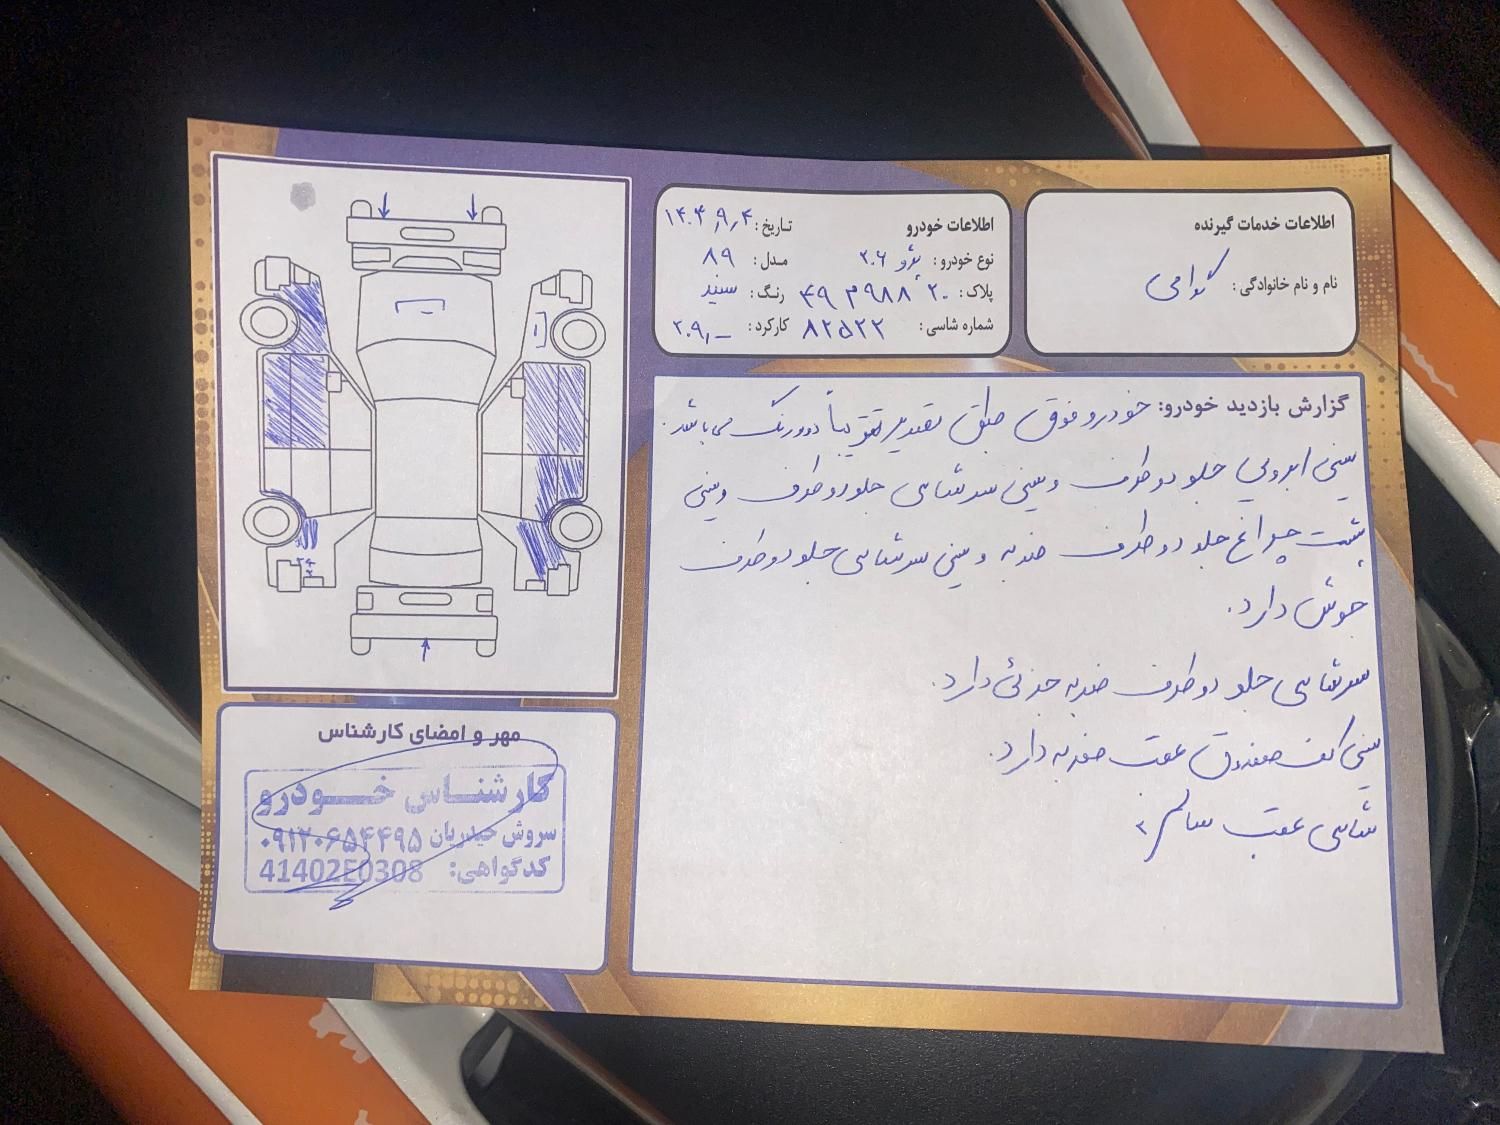 اطلاعات خدمات گیرنده
نام و نام خانوادگی: گرامی
اطلاعات خودرو
تاریخ: ۱۴۰۴٫۹٫۴
نوع خودرو: پژو ۲۰۶
مدل: ۸۹
پلاک: ۲۰ ۹۸۸ م ۴۹
رنگ: سفید
شماره شاسی: ۸۲۵۲۲
کارکرد: ۲۰۹٫-
گزارش بازدید خودرو: خودرو فوق طبق تصویر تقریباً دور رنگ می باشد.
سینی ابرویی جلو دو طرف و سینی سرشاسی جلو دو طرف و سینی
پشت چراغ جلو دو طرف ضربه و سینی سرشاسی جلو دو طرف
جوش دارد.
سرشاسی جلو دو طرف ضربه جزئی دارد.
سینی کف صندوق عقب ضربه دارد.
شاسی عقب سالم
مهر و امضای کارشناس
کارشناس خودرو
سروش حیدریان ۰۹۱۲۰۶۵۴۴۹۵
کدگواهی: 41402E0308